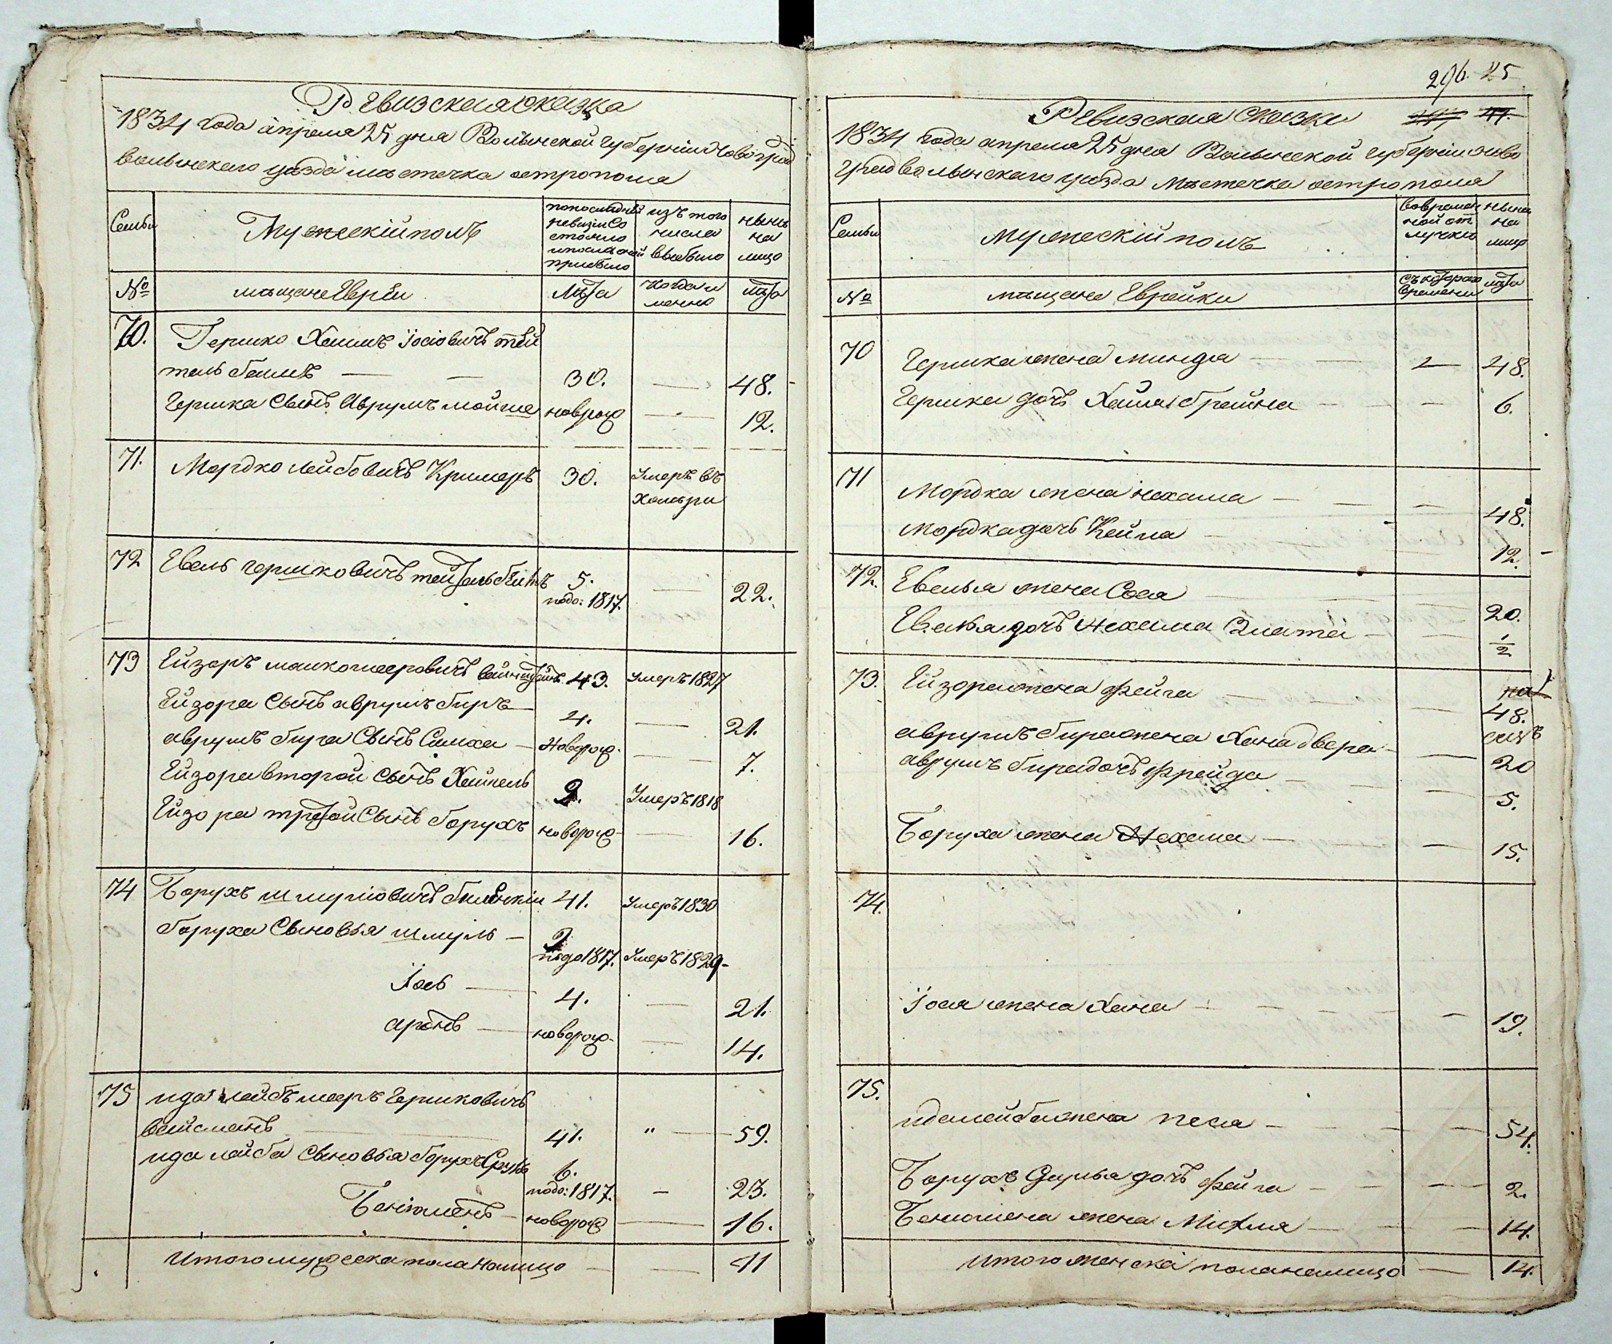 Ревизская сказка
1834 года апреля 25 дня Волынской губернии Новоград
волынского уезда местечка острополя
Семьи
Мужескій полъ
по последней ревизіи состояло и после оной прибыло
изъ того числа выбыло
ныне на лицо
№
мещане Евреи
Лета
когда именно
лета
70.
Гершко Хаимъ Іосіовичъ тей
тельбаимъ — —
30.
—
48.
Гершка Сынъ Аврумъ мойше
новрож
—
12.
71.
Мордко лейбовичъ Кримеръ
30.
Умеръ въ
72
Евель гершковичъ тейтельбаимъ
5.
подо: 1817.
—
22.
73
Ейзоръ
43.
Умеръ 1827
Ейзора Сынъ аврумъ биръ —
4.
—
21.
аврумъ бира Сынъ Симха —
Новорож.
—
7.
Ейзора второй сынъ Хаикель
2.
Умеръ 1818
Ейзора третой Сынъ борухъ
новорож-
—
16.
74
Борухъ шмуліовичъ
41.
Умеръ 1830
боруха Сыновья шмуль —
2
подо 1817.
Умеръ 1829-
Іось —
4.
—
21.
аронъ —
новорож-
—
14.
75
ида лейбъ меер Гершковичъ
Вейсманъ
41.
"
—
59.
ида лейба Сыновья борухъ Сруль
6.
подо: 1817.
—
23.
Беніоменъ —
новорож
—
16.
Итого мужеска пола налицо — —
11
296 25
Ревизская сказка
1834 года апреля 25 дня Волынской губерніи Ново
градволынскаго уезда местечка острополя
Семьи
мужескій полъ
во временной отлучке
ныне на лицо
№
мещане Еврейки
съ котораго времени
лета
70
Гершка жена минця —
—
48.
Гершка дочъ Хайа брайна — — —
6.
71
Мордка жена нехама — — —
48.
Мордка дочъ Кейла —
12.
72.
Евеля жена Сося —
20.
Евеля дочъ Нехама Злата —
1/2
73.
Ейзора жена фейга —
48.
аврумъ бира жена Хана двера —
20
аврумъ бира дочъ фрейда —
5.
Боруха жена Нехама —
—
15.
74.
Іося жена Хана — — — —
19.
75.
иделейба жена песя — — — —
54.
Борухъ Сруля дочъ фейга — — —
2.
Бениомена жена Михля — — —
14.
Итого женска пола налицо —
14.